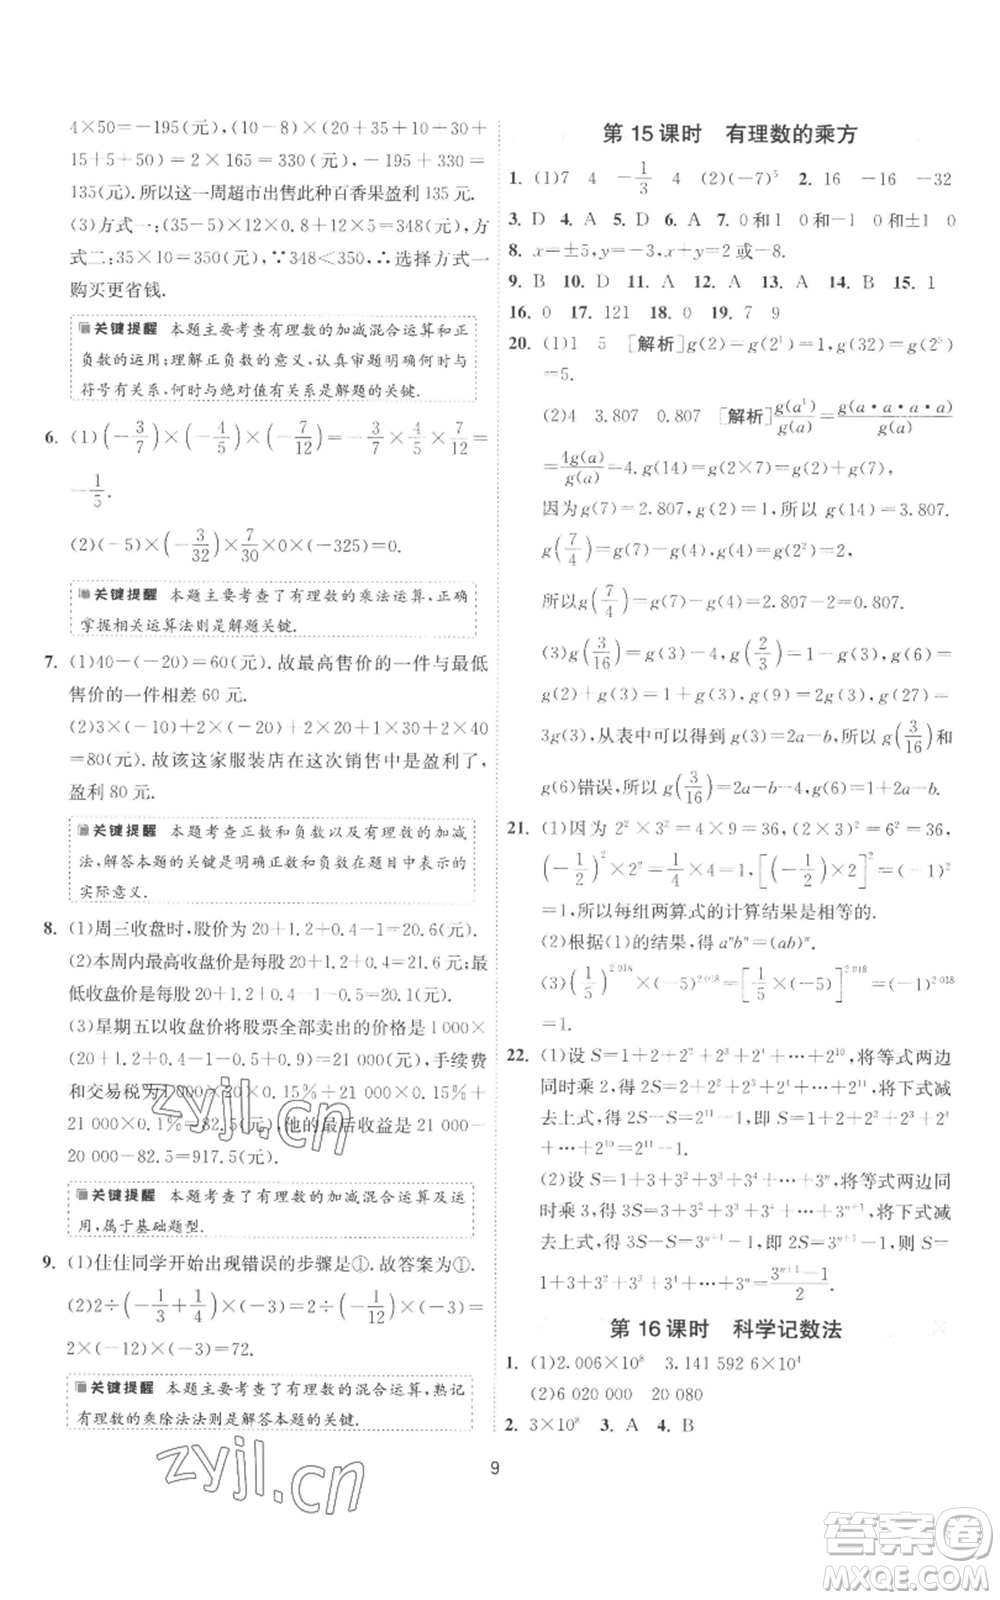 4×50=-195(元),(10-8)×(20+35+10+30+
15+5+50)=2×165=330(元),-195+330=
135(元).所以这一周超市出售此种百香果盈利135元.
(3)方式一:(35-5)×12×0.8+12×5=348(元),方
式二:35×10=350(元),∵348<350,∴选择方式一
购买更省钱.
关键提醒 本题主要考查有理数的加减混合运算和正
负数的运用;理解正负数的意义,认真审题明确何时与
符号有关系,何时与绝对值有关系是解题的关键.
6. (1)(-3/7)×(-4/5)×(-7/12)=-3/7×4/5×7/12=
-1/5.
(2)(-5)×(-3/32)×7/30×0×(-325)=0.
关键提醒 本题主要考查了有理数的乘法运算,正确
掌握相关运算法则是解题关键.
7. (1)40-(-20)=60(元).故最高售价的一件与最低
售价的一件相差60元.
(2)3×(-10)+2×(-20)+2×20+1×30+2×40
=80(元).故该这家服装店在这次销售中是盈利了,
盈利80元.
关键提醒 本题考查正数和负数以及有理数的加减
法,解答本题的关键是明确正数和负数在题目中表示的
实际意义.
8. (1)周三收盘时,股价为20+1.2+0.4-1=20.6(元).
(2)本周内最高收盘价是每股20+1.2+0.4=21.6元;最
低收盘价是每股20+1.2+0.4-1-0.5=20.1(元).
(3)星期五以收盘价将股票全部卖出的价格是1 000×
(20+1.2+0.4-1-0.5+0.9)=21 000(元),手续费
和交易税为1 000×20×0.15%+21 000×0.15%+
21 000×0.1%=82.5(元),他的最后收益是21 000-
20 000-82.5=917.5(元).
关键提醒 本题考查了有理数的加减混合运算及运
用,属于基础题型.
9. (1)佳佳同学开始出现错误的步骤是①.故答案为①.
(2)2÷(-1/3+1/4)×(-3)=2÷(-1/12)×(-3)=
2×(-12)×(-3)=72.
关键提醒 本题主要考查了有理数的混合运算,熟记
有理数的乘除法法则是解答本题的关键.
第15课时 有理数的乘方
1. (1)7 4 -1/3 4 (2)(-7)⁵ 2. 16 -16 -32
3. D 4. A 5. D 6. A 7. 0和1 0和-1 0和±1 0
8. x=±5,y=-3,x+y=2或-8.
9. B 10. D 11. A 12. A 13. A 14. B 15. 1
16. 0 17. 121 18. 0 19. 7 9
20. (1)1 5 [解析]g(2)=g(2¹)=1,g(32)=g(2⁵)
=5.
(2)4 3.807 0.807 [解析]g(a⁴)/g(a)=g(a·a·a·a)/g(a)
=4g(a)/g(a)=4.g(14)=g(2×7)=g(2)+g(7),
因为g(7)=2.807,g(2)=1,所以g(14)=3.807.
g(7/4)=g(7)-g(4),g(4)=g(2²)=2,
所以g(7/4)=g(7)-g(4)=2.807-2=0.807.
(3)g(3/16)=g(3)-4,g(2/3)=1-g(3),g(6)=
g(2)+g(3)=1+g(3),g(9)=2g(3),g(27)=
3g(3),从表中可以得到g(3)=2a-b.所以g(3/16)和
g(6)错误,所以g(3/16)=2a-b-4,g(6)=1+2a-b.
21. (1)因为2²×3²=4×9=36,(2×3)²=6²=36,
(-1/2)²×2²=1/4×4=1,[(-1/2)×2]²=(-1)²
=1,所以每组两算式的计算结果是相等的.
(2)根据(1)的结果,得aⁿbⁿ=(ab)ⁿ.
(3)(1/5)^2 018×(-5)^2 018=[1/5×(-5)]^2 018=(-1)^2 018
=1.
22. (1)设S=1+2+2²+2³+2⁴+…+2¹⁰,将等式两边
同时乘2,得2S=2+2²+2³+2⁴+…+2¹¹,将下式减
去上式,得2S-S=2¹¹-1,即S=1+2+2²+2³+2⁴
+…+2¹⁰=2¹¹-1.
(2)设S=1+3+3²+3³+3⁴+…+3ⁿ,将等式两边同
时乘3,得3S=3+3²+3³+3⁴+…+3ⁿ⁺¹,将下式减
去上式,得3S-S=3ⁿ⁺¹-1,即2S=3ⁿ⁺¹-1,则S=
1+3+3²+3³+3⁴+…+3ⁿ=(3ⁿ⁺¹-1)/2.
第16课时 科学记数法
1. (1)2.006×10⁸ 3.141 592 6×10⁴
(2)6 020 000 20 080
2. 3×10⁸ 3. A 4. B
9
zyjl.cn
zyjl.cn
答案圈
MXQE.COM